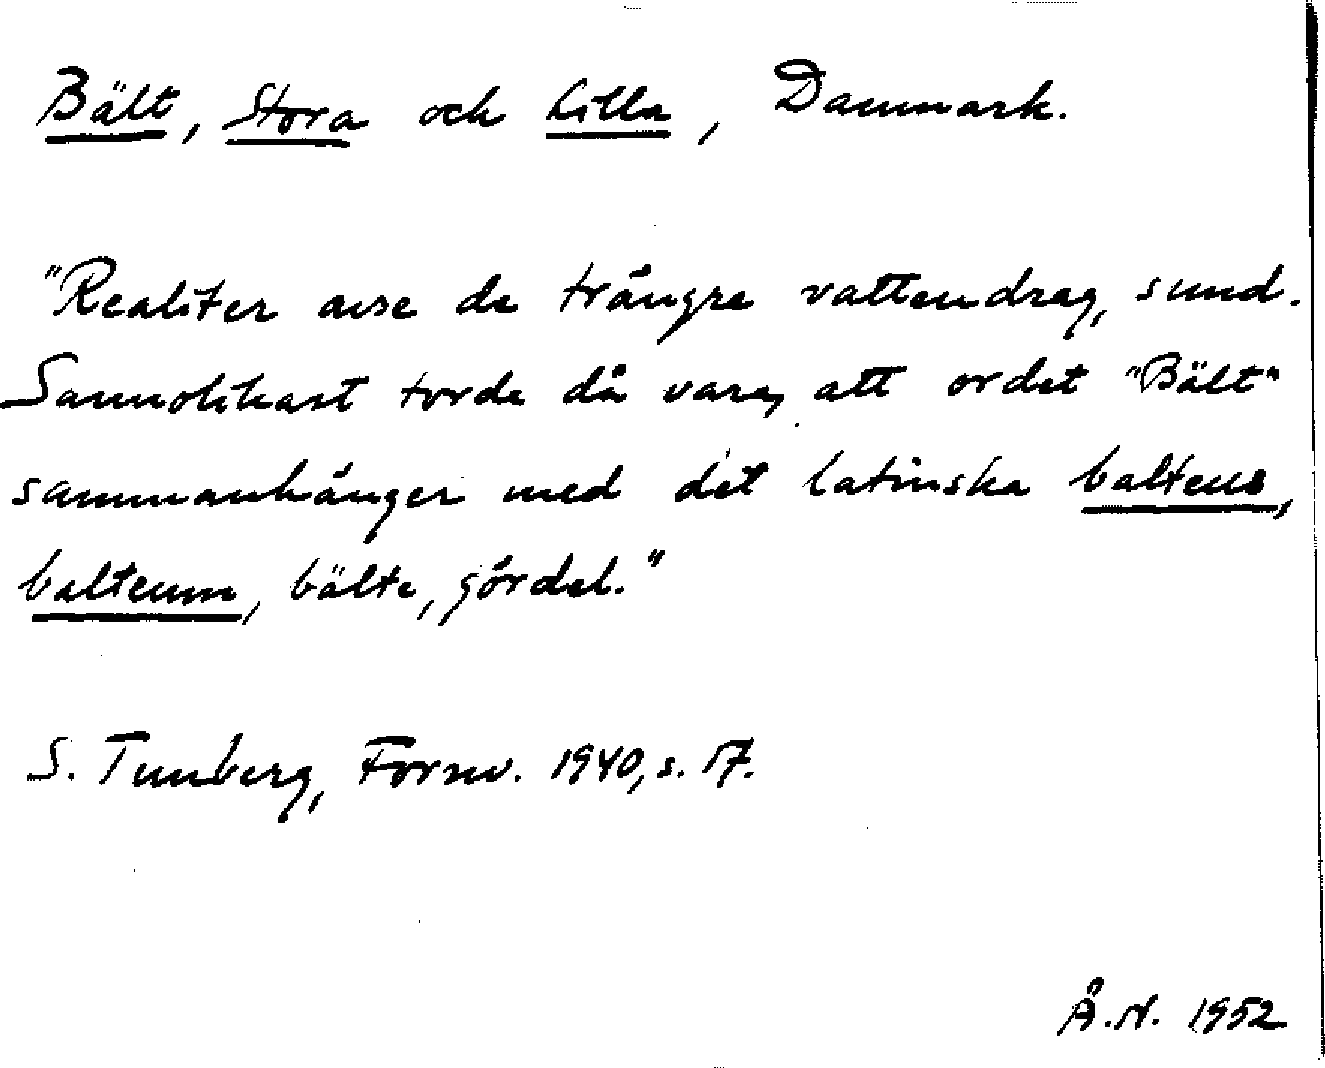 Bält, Stora och Lilla, Danmark.
"Realiter avse de trängre vattendrag, sund.
Sannolikast torde då vara, att ordet "Bält"
sammanhänger med det latinska balteus,
balteum, bälte, gördel."
S. Tunberg, Fornv. 1940, s. 17.
Å.N. 1952